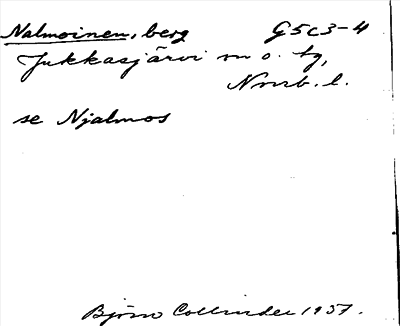 Nalmoinen, berg G5c3-4
Jukkasjärvi sn o. tg,
Norrb. l.
se Njalmos
Björn Collinder 1957.